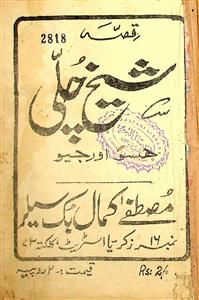 قصہ
2818
شیخ چلّی
کے
جیسو اور جیو
مصطفےٰ کمال بک سیلر
نمبر ۱۶ زکریا اسٹریٹ کلکتہ ۷۳
قیمت:- ۲ روپیہ
Rs: 2/-